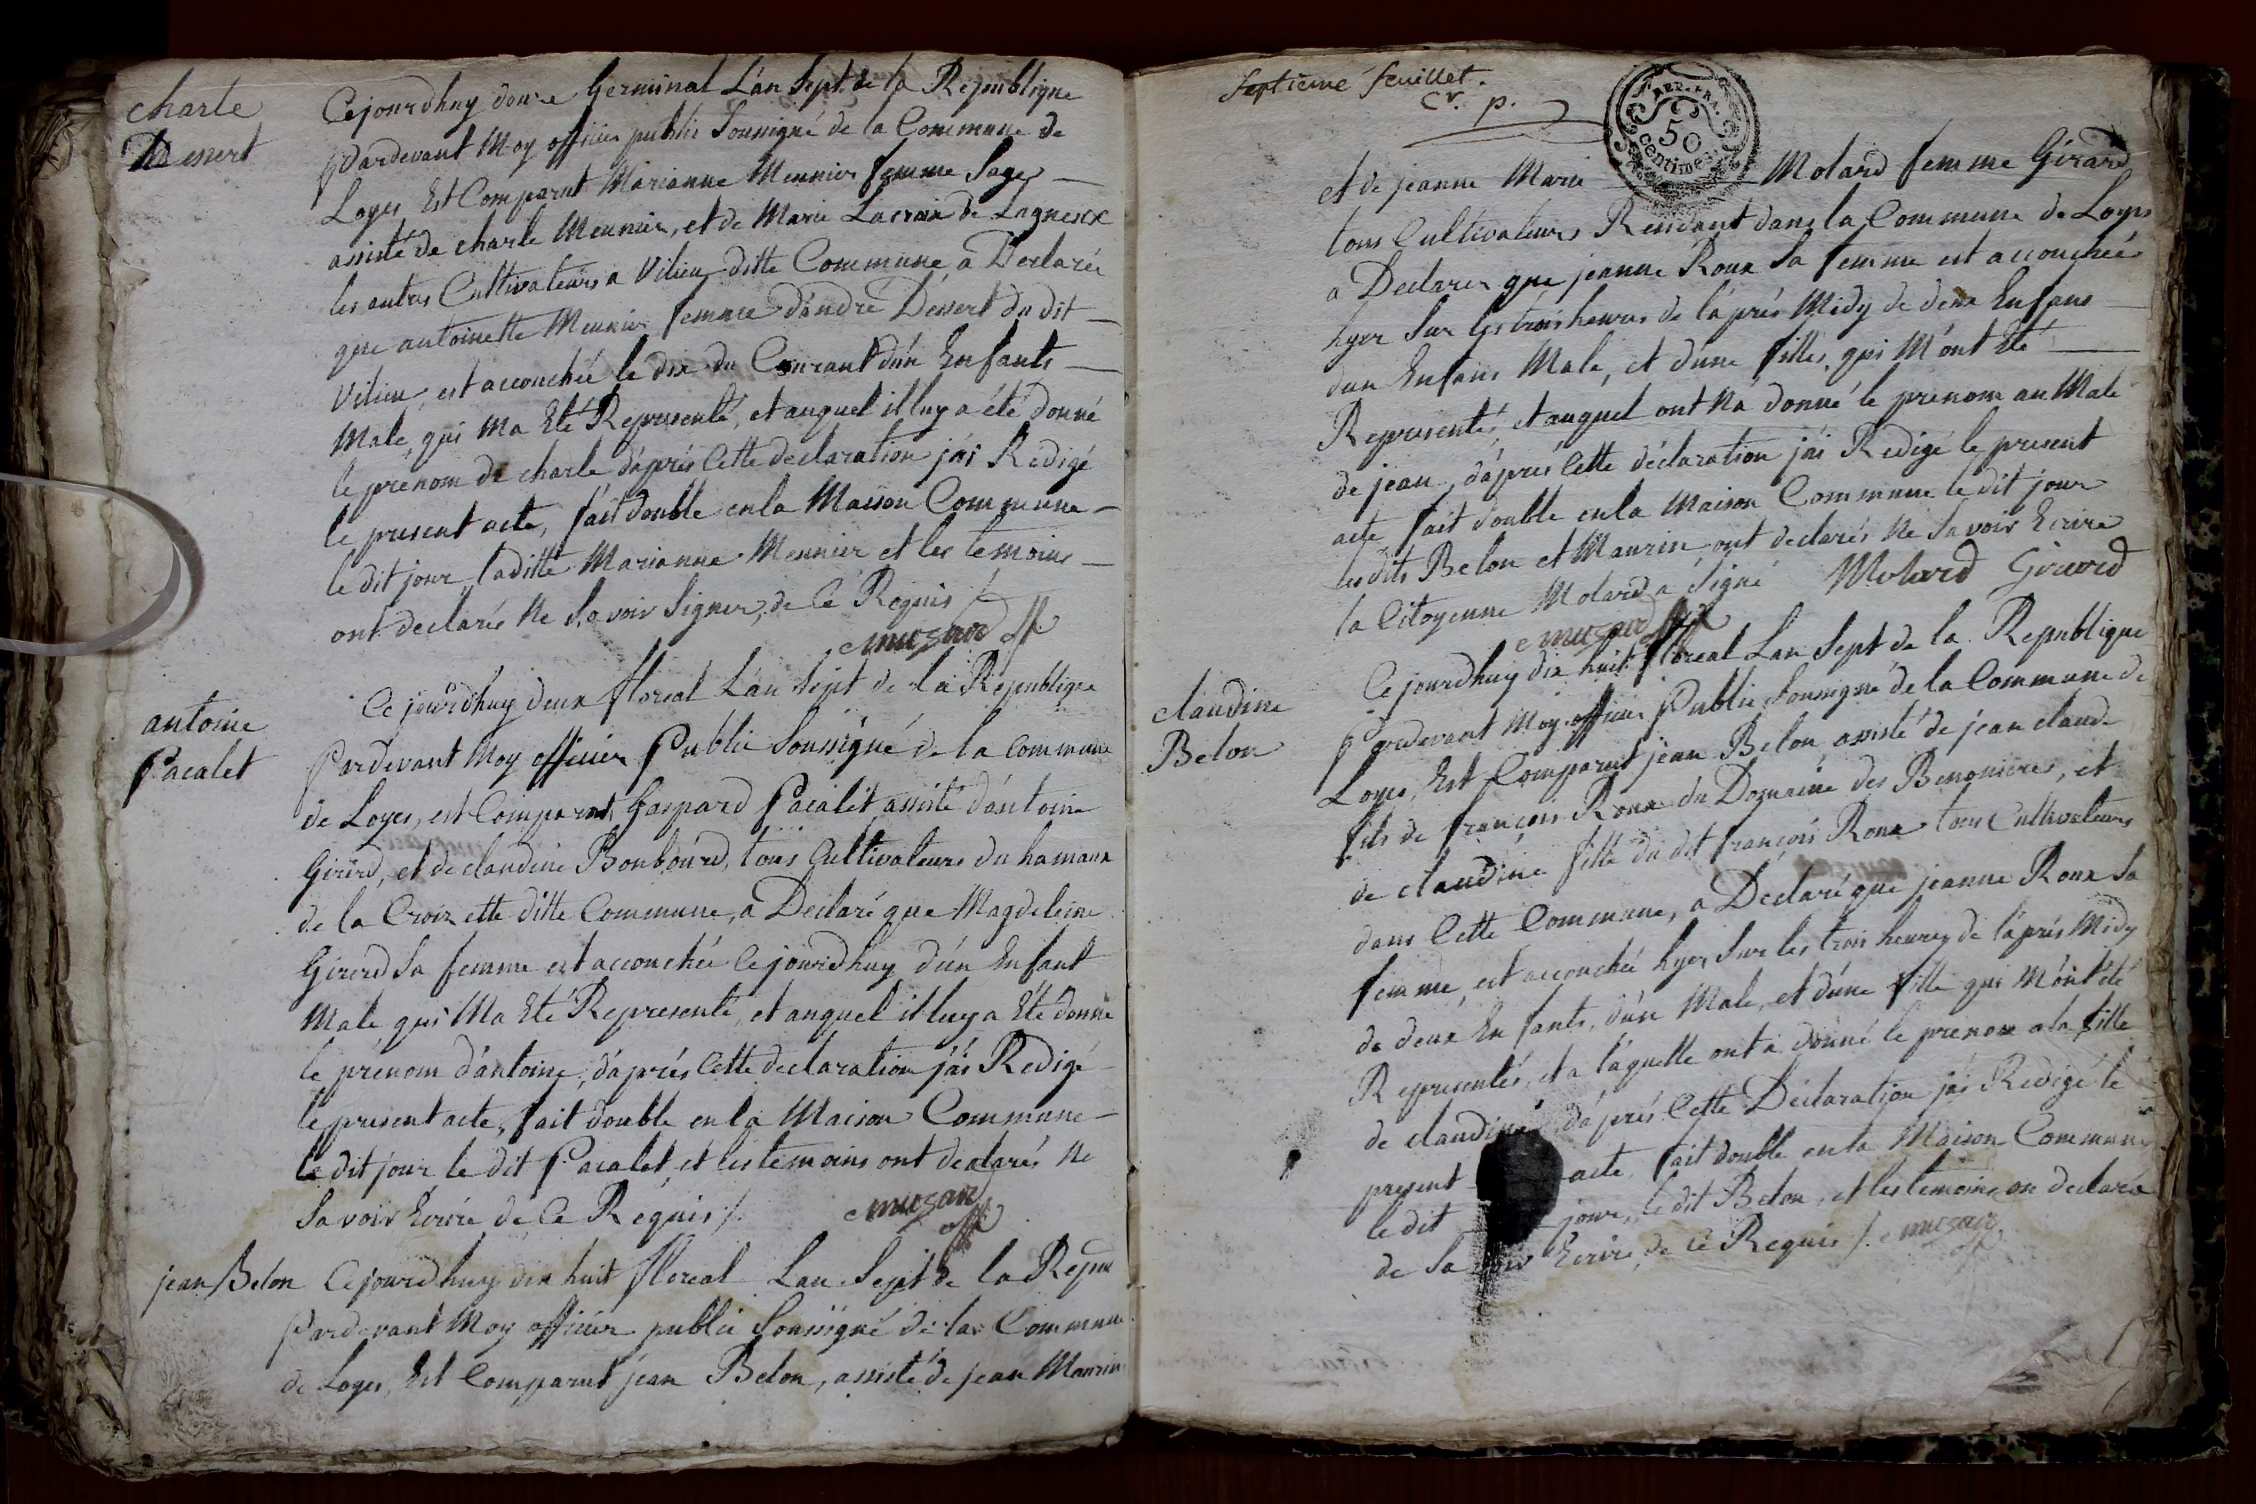 charle
Dessert
Cejourdhuy douze Germinal L'an Sept de la Republique
Pardevant Moy officier public Soussigné de la Commune de
Loyes, Est Comparut Marianne Meunier femme Sage
assisté de charle Meunier, et de Marie Lacroix de Lagnieux
les autres Cultivateurs a Vilieu ditte Commune, a Declarée
que antoinette Meunier femme d'andré Dessert du dit
Vilieu, est accouchée le dix du Courant d'un Enfants
Male, qui Ma Eté Representé, et auquel il luy a été donné
le prenom de charle d'aprés Cette declaration j'ai Redigé
le present acte, fait double en la Maison Commune
le dit jour, laditte Marianne Meunier et les temoins
ont declarés Ne Savoir Signer, de Ce Requis /.
musard off
antoine
Pacalet
Ce jourdhuy deux floreal L'an Sept de la Republique
Pardevant Moy officier Public Soussigné de la Commune
de Loyes, est Comparut Gaspard Pacalet assisté d'antoine
Girerd, et de claudine Bonbourd, tous Cultivateurs du hamaux
de la Croix ette ditte Commune, a Declaré que Magdeleine
Girerd Sa femme est accouchée Cejourdhuy d'un Enfant
Male qui Ma Eté Representé, et auquel il luy a Eté donné
le prénom d'antoine, d'aprés Cette declaration j'ai Redigé
le present acte, fait double en la Maison Commune
le dit jour le dit Pacalet, et les temoins ont declarés Ne
Savoir Ecrire de Ce Requis /.
musard
off
jean Belon
Cejourdhuy dix huit floreal Lan Sept de la Repue
Pardevant Moy officier public Soussigné de la Commune
de Loyes, Est Comparut jean Belon, assisté de jean Maurin
Septieme feuillet.
Cr. p.
REP. FRA.
50
centimes
et de jeanne Marie Molard femme Girard
tous Cultivateurs Residant dans la Commune de Loyes
a Declarer que jeanne Roux Sa femme est accouchée
hyer Sur les trois heures de l'aprés Midy de deux Enfans
d'un Enfans Male, et d'une filles, qui M'ont Eté
Representés, et auquel ont Na donné le prenom au Male
de jean, d'aprés Cette déclaration j'ai Redigé le present
acte fait double en la Maison Commune le dit jour
les dits Belon et Maurin ont declarés Ne Savoir Ecrire
la Citoyenne Molard a Signé Molard Girard
musard off
claudine
Belon
Cejourdhuy dix huit floreal Lan Sept de la Republique
Pardevant Moy officier Public Soussigné de la Commune de
Loyes, Est Comparut jean Belon, assisté de jean claude
fils de françois Roux du Domaine des Bemonieres, et
de claudine fille du dit françois Roux tous Cultivateurs
dans Cette Commune, a Declaré que jeanne Roux Sa
femme, est accouchée hyer Sur les trois heures de l'aprés Midy
de deux Enfants, d'un Male, et d'une fille qui M'ont été
Representés, et a laquelle ont a donné le prenom a la fille
de claudine d'aprés Cette Déclaration j'ai Redigé le
present acte, fait double en la Maison Commune
le dit jour, le dit Belon, et les temoins on declaré
de Savoir Ecrire, de Ce Requis /. musard
off